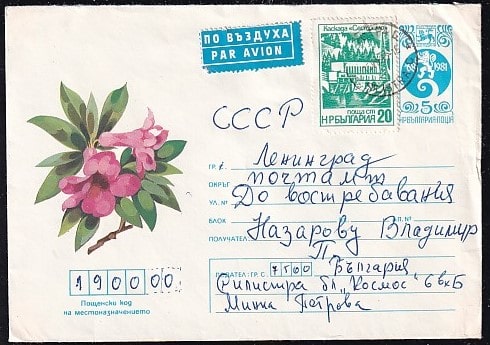 ПО ВЪЗДУХА
PAR AVION
Каскада „Сестримо“
ПОЩА СТ
НР БЪЛГАРИЯ 20
1981
5
НР БЪЛГАРИЯ ПОЩА
СССР
ГР. с. Ленинград
ОКРЪГ почтамт
УЛ. № До востребования
БЛОК АП. №
ПОЛУЧАТЕЛ: Назарову Владимир
П.
ПОДАТЕЛ: ГР. С. 7500 България
Силистра бл. „Космос" 6 вх Б
Минка Петрова
190000
Пощенски код
на местоназначението